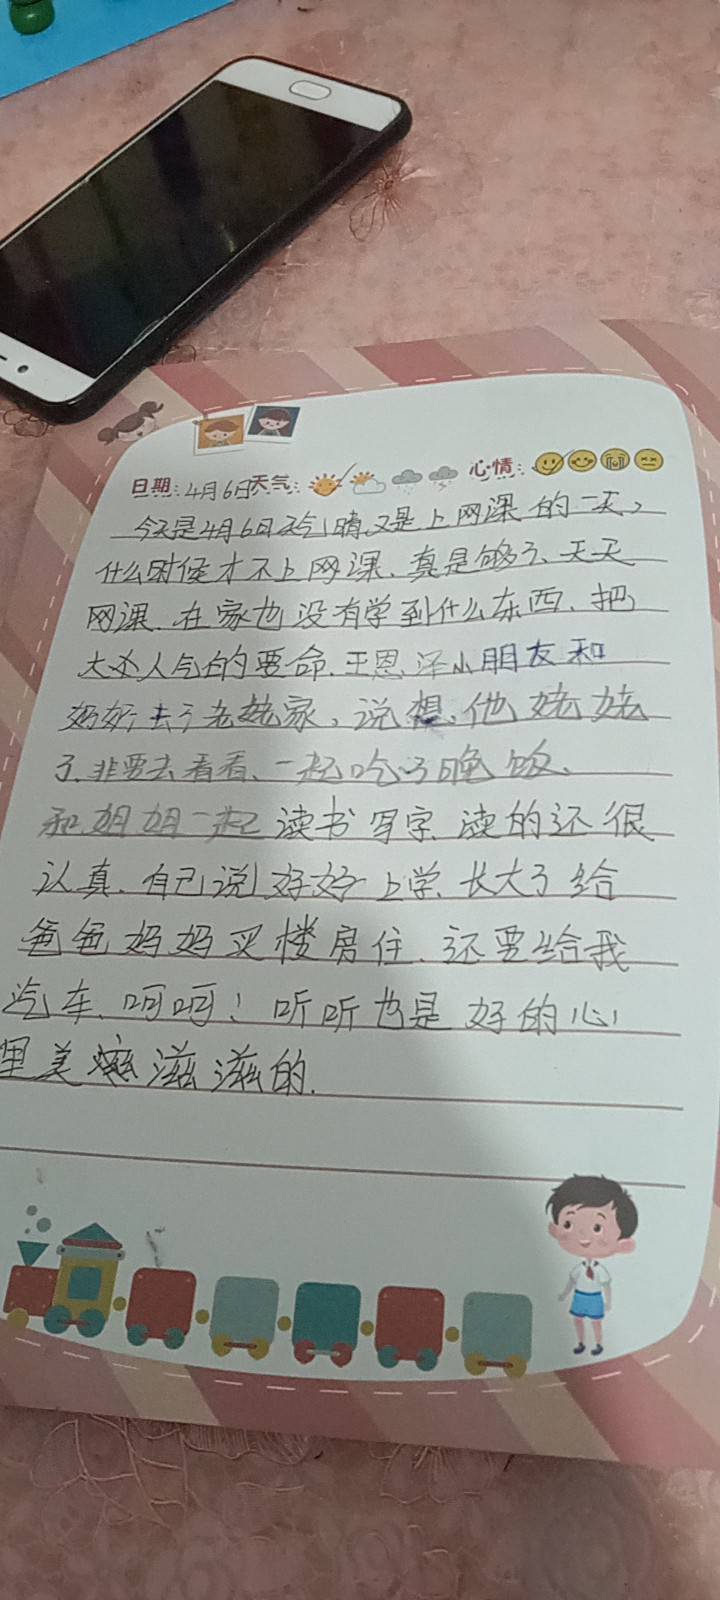 日期:4月6日天气: 心情:
今天是4月6日天气晴,又是上网课的一天,
什么时候才不上网课、真是够了、天天
网课、在家也没有学到什么东西、把
大人气的要命.王恩泽小朋友和
奶奶去了老姥家、说想他姥姥
了.非要去看看、一起吃了晚饭、
和姐姐一起读书写字.读的还很
认真.自己说好好上学.长大了给
爸爸妈妈买楼房住.还要给我
汽车.呵呵!听听也是好的心
里美滋滋的.